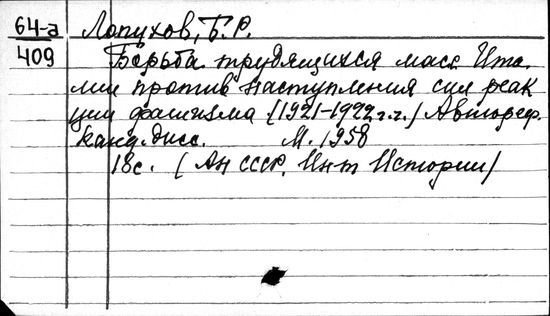 64-а Лопухов, Б.Р.
409 Борьба трудящихся масс Ита
лии против наступления сил реак
ции фашизма (1921-1922 г.г.) Автореф.
канд. дисс. М. 1958
18 с. (Ан СССР, Ин-т Истории)